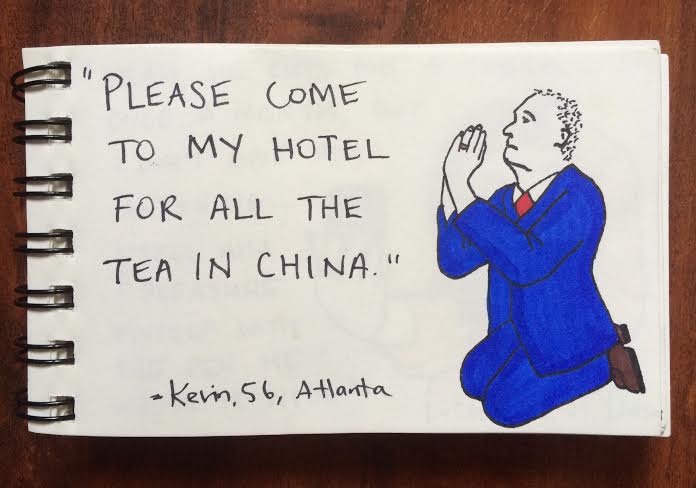 "PLEASE COME
TO MY HOTEL
FOR ALL THE
TEA IN CHINA."
- Kevin, 56, Atlanta